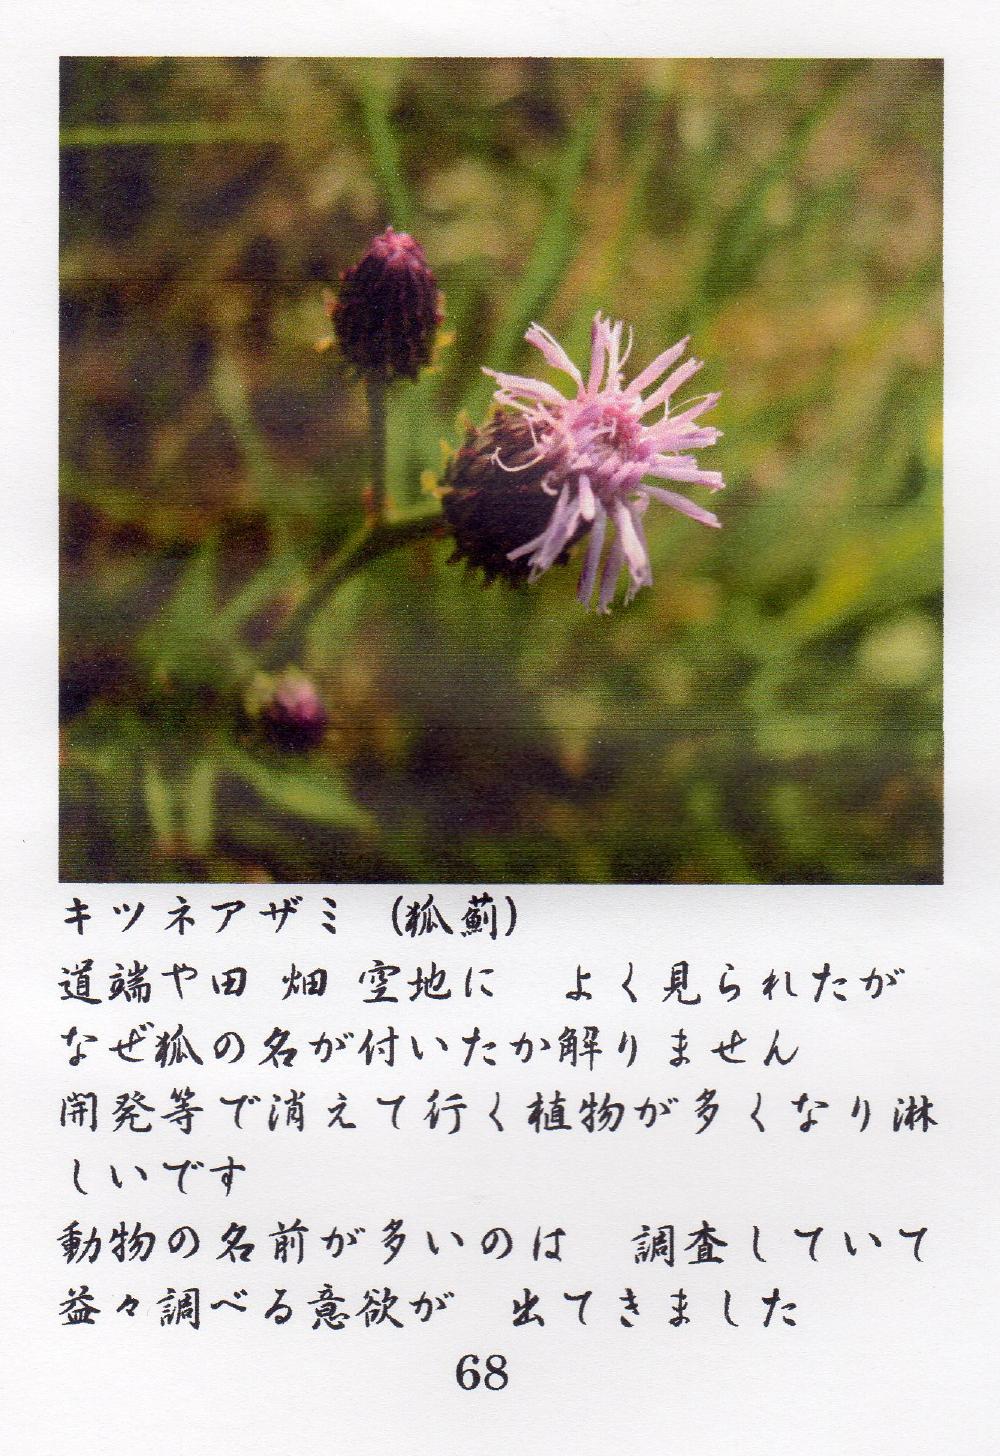 キツネアザミ （狐薊）
道端や田 畑 空地に　よく見られたが
なぜ狐の名が付いたか解りません
開発等で消えて行く植物が多くなり淋
しいです
動物の名前が多いのは　調査していて
益々調べる意欲が　出てきました
68